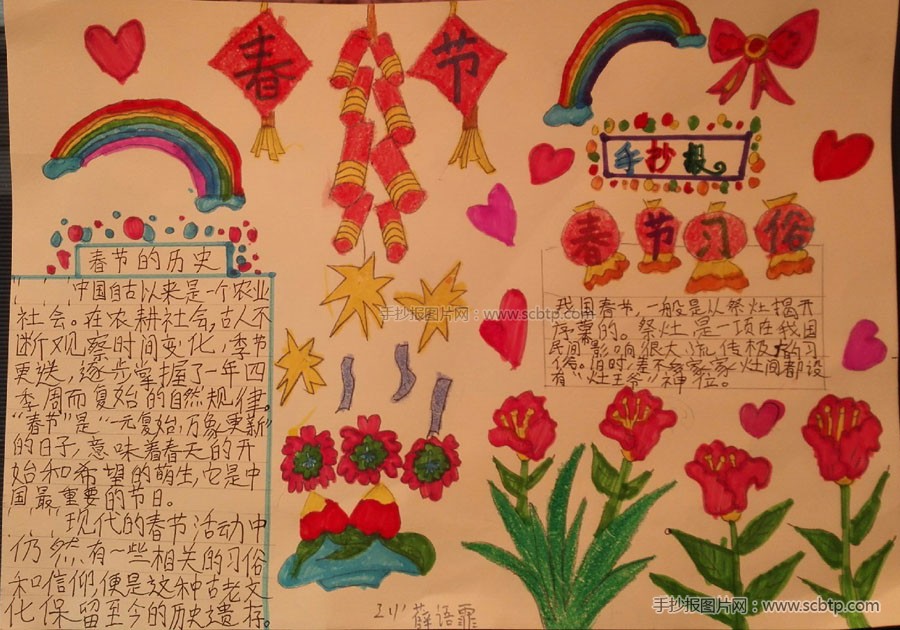 春节
手抄报
春节习俗
春节的历史
中国自古以来是一个农业
社会。在农耕社会,古人不
断观察时间变化,季节
更迭,逐步掌握了一年四
季周而复始的自然规律。
“春节”是“一元复始,万象更新”
的日子,意味着春天的开
始和希望的萌生,它是中
国最重要的节日。
现代的春节活动中
仍然有一些相关的习俗
和信仰便是这种古老文
化保留至今的历史遗存。
我国春节,一般是从祭灶揭开
序幕的。祭灶是一项在我国
民间影响很大、流传极广的习
俗。旧时,差不多家家灶间都设
有“灶王爷”神位。
手抄报图片网:www.scbtp.com
薛语霏
手抄报图片网:www.scbtp.com